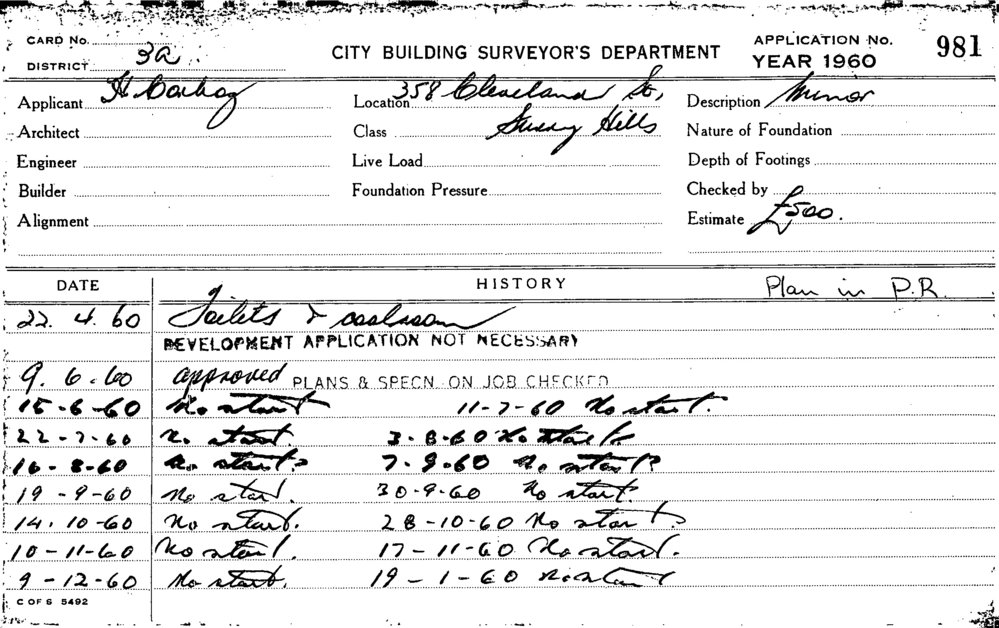 CARD No. CITY BUILDING SURVEYOR'S DEPARTMENT APPLICATION No. 981
DISTRICT 3a YEAR 1960
Applicant H Location 358 Cleveland St, Description Minor
Architect Class Surry Hills Nature of Foundation
Engineer Live Load Depth of Footings
Builder Foundation Pressure Checked by
Alignment Estimate £500.
DATE HISTORY Plan in P.R.
22. 4. 60 Toilets & coalroom
DEVELOPMENT APPLICATION NOT NECESSARY
9. 6. 60 approved PLANS & SPECN. ON JOB CHECKED
15-6-60 No start 11-7-60 No start.
22-7-60 No start. 3-8-60 No start.
16-8-60 No start. 7-9-60 No start.
19-9-60 No start. 30-9-60 No start.
14.10-60 No start. 28-10-60 No start.
10-11-60 No start. 17-11-60 No start.
9-12-60 No start. 19-1-60 No start
C OF S 5492